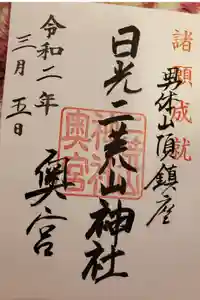 諸願成就
男体山頂鎮座
日光二荒山神社
奥宮
令和二年
三月五日
二荒山
神社
奥宮